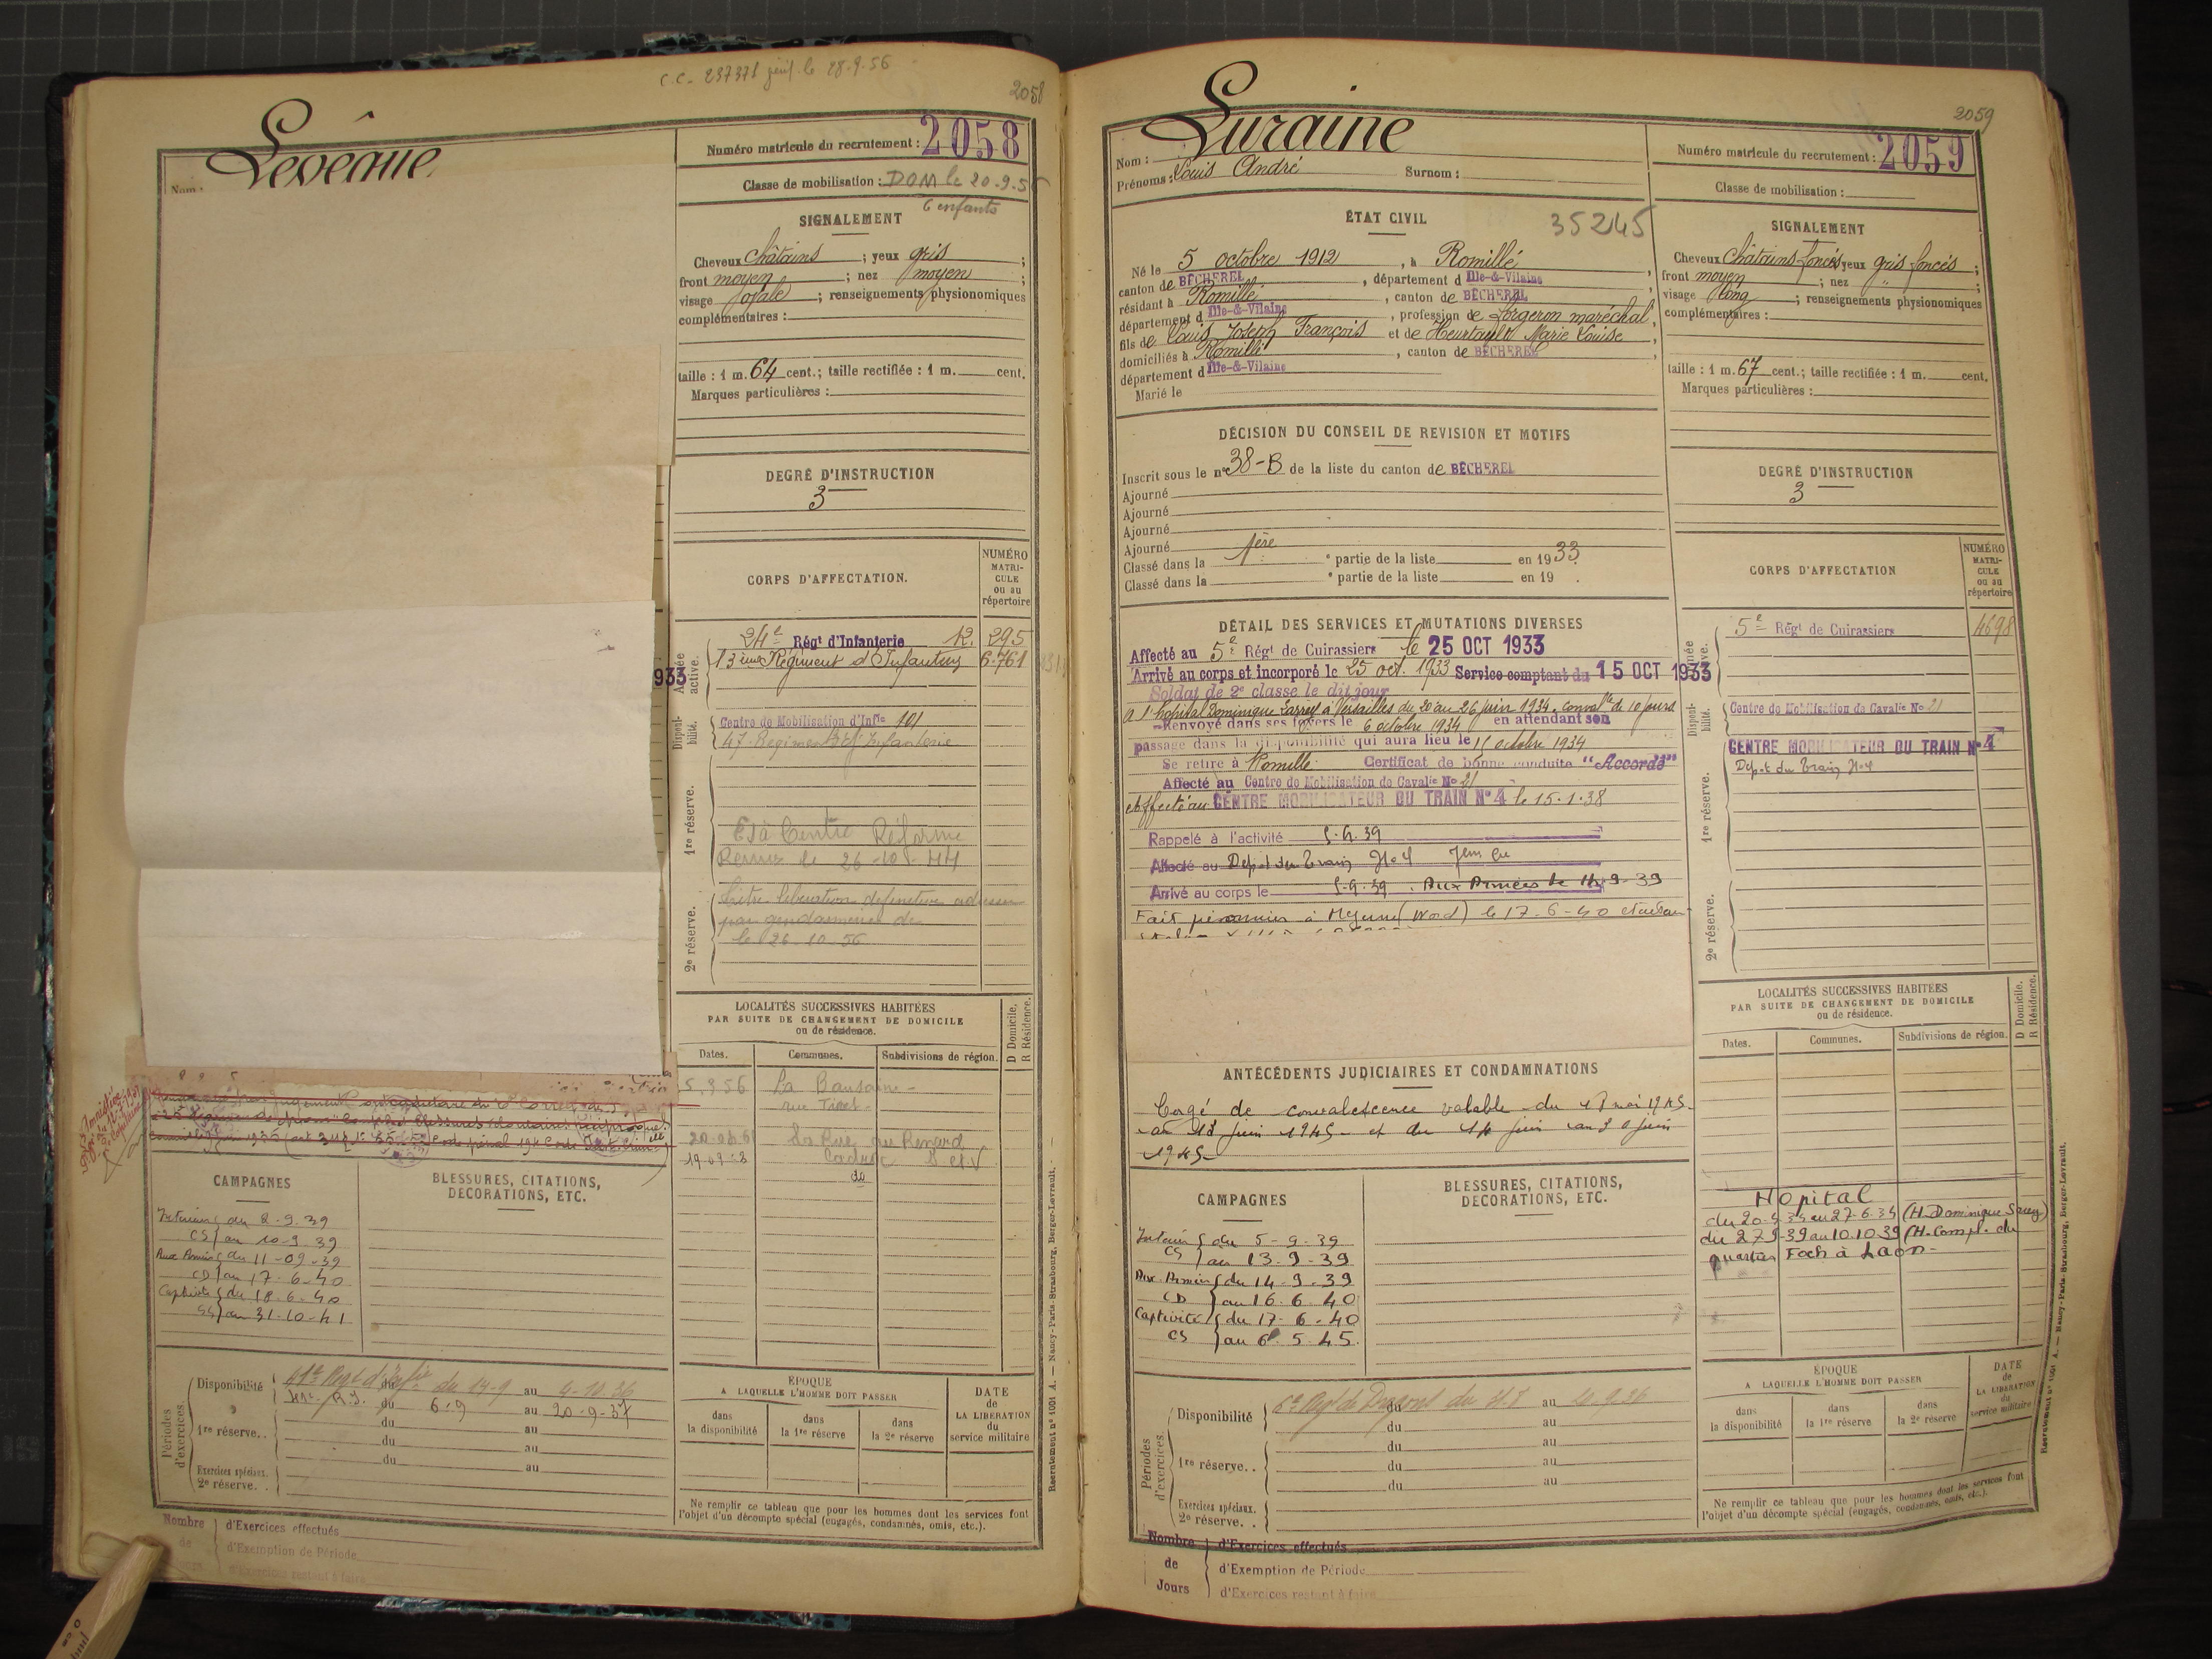 C.C. 237371 le 28-9-56
2058
Levêque
Nom :
Numéro matricule du recrutement : 2058
Classe de mobilisation : DOM le 20-9-5
6 enfants
SIGNALEMENT
Cheveux châtains ; yeux gris ;
front moyen ; nez moyen ;
visage ovale ; renseignements physionomiques
complémentaires :
taille : 1 m. 64 cent.; taille rectifiée : 1 m. cent.
Marques particulières :
DEGRÉ D'INSTRUCTION
3
CORPS D'AFFECTATION.
NUMÉRO MATRI-CULE ou au répertoire
Armée active.
24e Régt d'Infanterie 12. 295
13ème Régiment d'Infanterie 6.761
933
Disponi-bilité.
Centre de Mobilisation d'Infie 101
47 Régiment d'Infanterie
1re réserve.
Centre Réforme
Rennes le 26-10-44
2e réserve.
Titre libération définitive
par gendarmerie de
le 26-10-56
LOCALITÉS SUCCESSIVES HABITÉES
PAR SUITE DE CHANGEMENT DE DOMICILE
ou de résidence.
D Domicile, R Résidence.
Dates. Communes. Subdivisions de région.
5.3.56 La Baussaine -
rue
La Rue au Renard
do
CAMPAGNES
BLESSURES, CITATIONS,
DÉCORATIONS, ETC.
Intérieur du 2-9-39
CS au 10-9-39
Aux Armées du 11-09-39
CD au 17-6-40
Captivité du 18-6-40
CS au 31-10-41
Périodes d'exercices.
Disponibilité 41e Régt d'Infie du 14-9 au 4-10-36
du 6-9 au 20-9-37
1re réserve. . du au
du au
du au
Exercices spéciaux.
2e réserve. .
ÉPOQUE
A LAQUELLE L'HOMME DOIT PASSER
DATE de LA LIBÉRATION du service militaire
dans la disponibilité
dans la 1re réserve
dans la 2e réserve
Ne remplir ce tableau que pour les hommes dont les services font
l'objet d'un décompte spécial (engagés, condamnés, omis, etc.).
Nombre de Jours
d'Exercices effectués
d'Exemption de Période
d'Exercices restant à faire
Recrutement n° 1001 A. — Nancy-Paris-Strasbourg, Berger-Levrault.
2059
Nom : Luraine
Prénoms : Louis André Surnom :
Numéro matricule du recrutement : 2059
Classe de mobilisation :
ÉTAT CIVIL
35245
Né le 5 octobre 1912, à Romillé,
canton de BÉCHEREL, département d Ille-&-Vilaine
résidant à Romillé, canton de BÉCHEREL
département d Ille-&-Vilaine, profession de forgeron maréchal,
fils de Louis Joseph François et de Heurtault Marie Louise,
domiciliés à Romillé, canton de BÉCHEREL,
département d Ille-&-Vilaine
Marié le
SIGNALEMENT
Cheveux châtains foncés yeux gris foncés ;
front moyen ; nez " ;
visage long ; renseignements physionomiques
complémentaires :
taille : 1 m. 67 cent.; taille rectifiée : 1 m. cent.
Marques particulières :
DÉCISION DU CONSEIL DE REVISION ET MOTIFS
Inscrit sous le n° 38-B de la liste du canton de BÉCHEREL
Ajourné
Ajourné
Ajourné
Ajourné
Classé dans la 1ère e partie de la liste en 1933.
Classé dans la e partie de la liste en 19 .
DEGRÉ D'INSTRUCTION
3
DÉTAIL DES SERVICES ET MUTATIONS DIVERSES
Affecté au 5e Régt de Cuirassiers le 25 OCT 1933
Arrivé au corps et incorporé le 25 oct. 1933 Service comptant du 15 OCT 1933
Soldat de 2e classe le dit jour
A l'hôpital Dominique Larrey à Versailles du 20 au 26 juin 1934. convalce de 10 jours
Renvoyé dans ses foyers le 6 octobre 1934 en attendant son
passage dans la disponibilité qui aura lieu le 15 octobre 1934
Se retire à Romillé Certificat de bonne conduite "Accordé"
Affecté au Centre de Mobilisation de Cavalie No 21
Affecté au CENTRE MOBILISATEUR DU TRAIN N° 4 le 15-1-38
Rappelé à l'activité 5-9-39
Affecté au Dépot du Train No 4
Arrivé au corps le 5-9-39. Aux Armées le 14-9-39
Fait prisonnier à (Nord) le 17-6-40
CORPS D'AFFECTATION
NUMÉRO MATRI-CULE ou au répertoire
5e Régt de Cuirassiers 4698
Disponi-bilité.
Centre de Mobilisation de Cavalie No 21
1re réserve.
CENTRE MOBILISATEUR DU TRAIN N° 4
Dépot du Train No 4
2e réserve.
ANTÉCÉDENTS JUDICIAIRES ET CONDAMNATIONS
Congé de convalescence valable du 17 mai 1945
au 13 juin 1945 et du 14 juin au 30 juin
1945
LOCALITÉS SUCCESSIVES HABITÉES
PAR SUITE DE CHANGEMENT DE DOMICILE
ou de résidence.
D Domicile. R Résidence.
Dates. Communes. Subdivisions de région.
Hopital
du 20-6-34 au 27-6-34 (H. Dominique Larrey)
du 27-9-39 au 10.10.39 (H. Compl. du
quartier Foch à Laon -
CAMPAGNES
BLESSURES, CITATIONS,
DÉCORATIONS, ETC.
Intérieur du 5-9-39
CS au 13-9-39
Aux Armées du 14-9-39
CD au 16-6-40
Captivité du 17-6-40
CS au 6-5-45
Périodes d'exercices.
Disponibilité 6e Régt de Dragons du au
du au
1re réserve. . du au
du au
du au
Exercices spéciaux.
2e réserve. .
ÉPOQUE
A LAQUELLE L'HOMME DOIT PASSER
DATE de LA LIBÉRATION du service militaire
dans la disponibilité
dans la 1re réserve
dans la 2e réserve
Ne remplir ce tableau que pour les hommes dont les services font
l'objet d'un décompte spécial (engagés, condamnés, omis, etc.).
Nombre de Jours
d'Exercices effectués
d'Exemption de Période
d'Exercices restant à faire
Recrutement n° 1001 A. — Nancy-Paris-Strasbourg, Berger-Levrault.